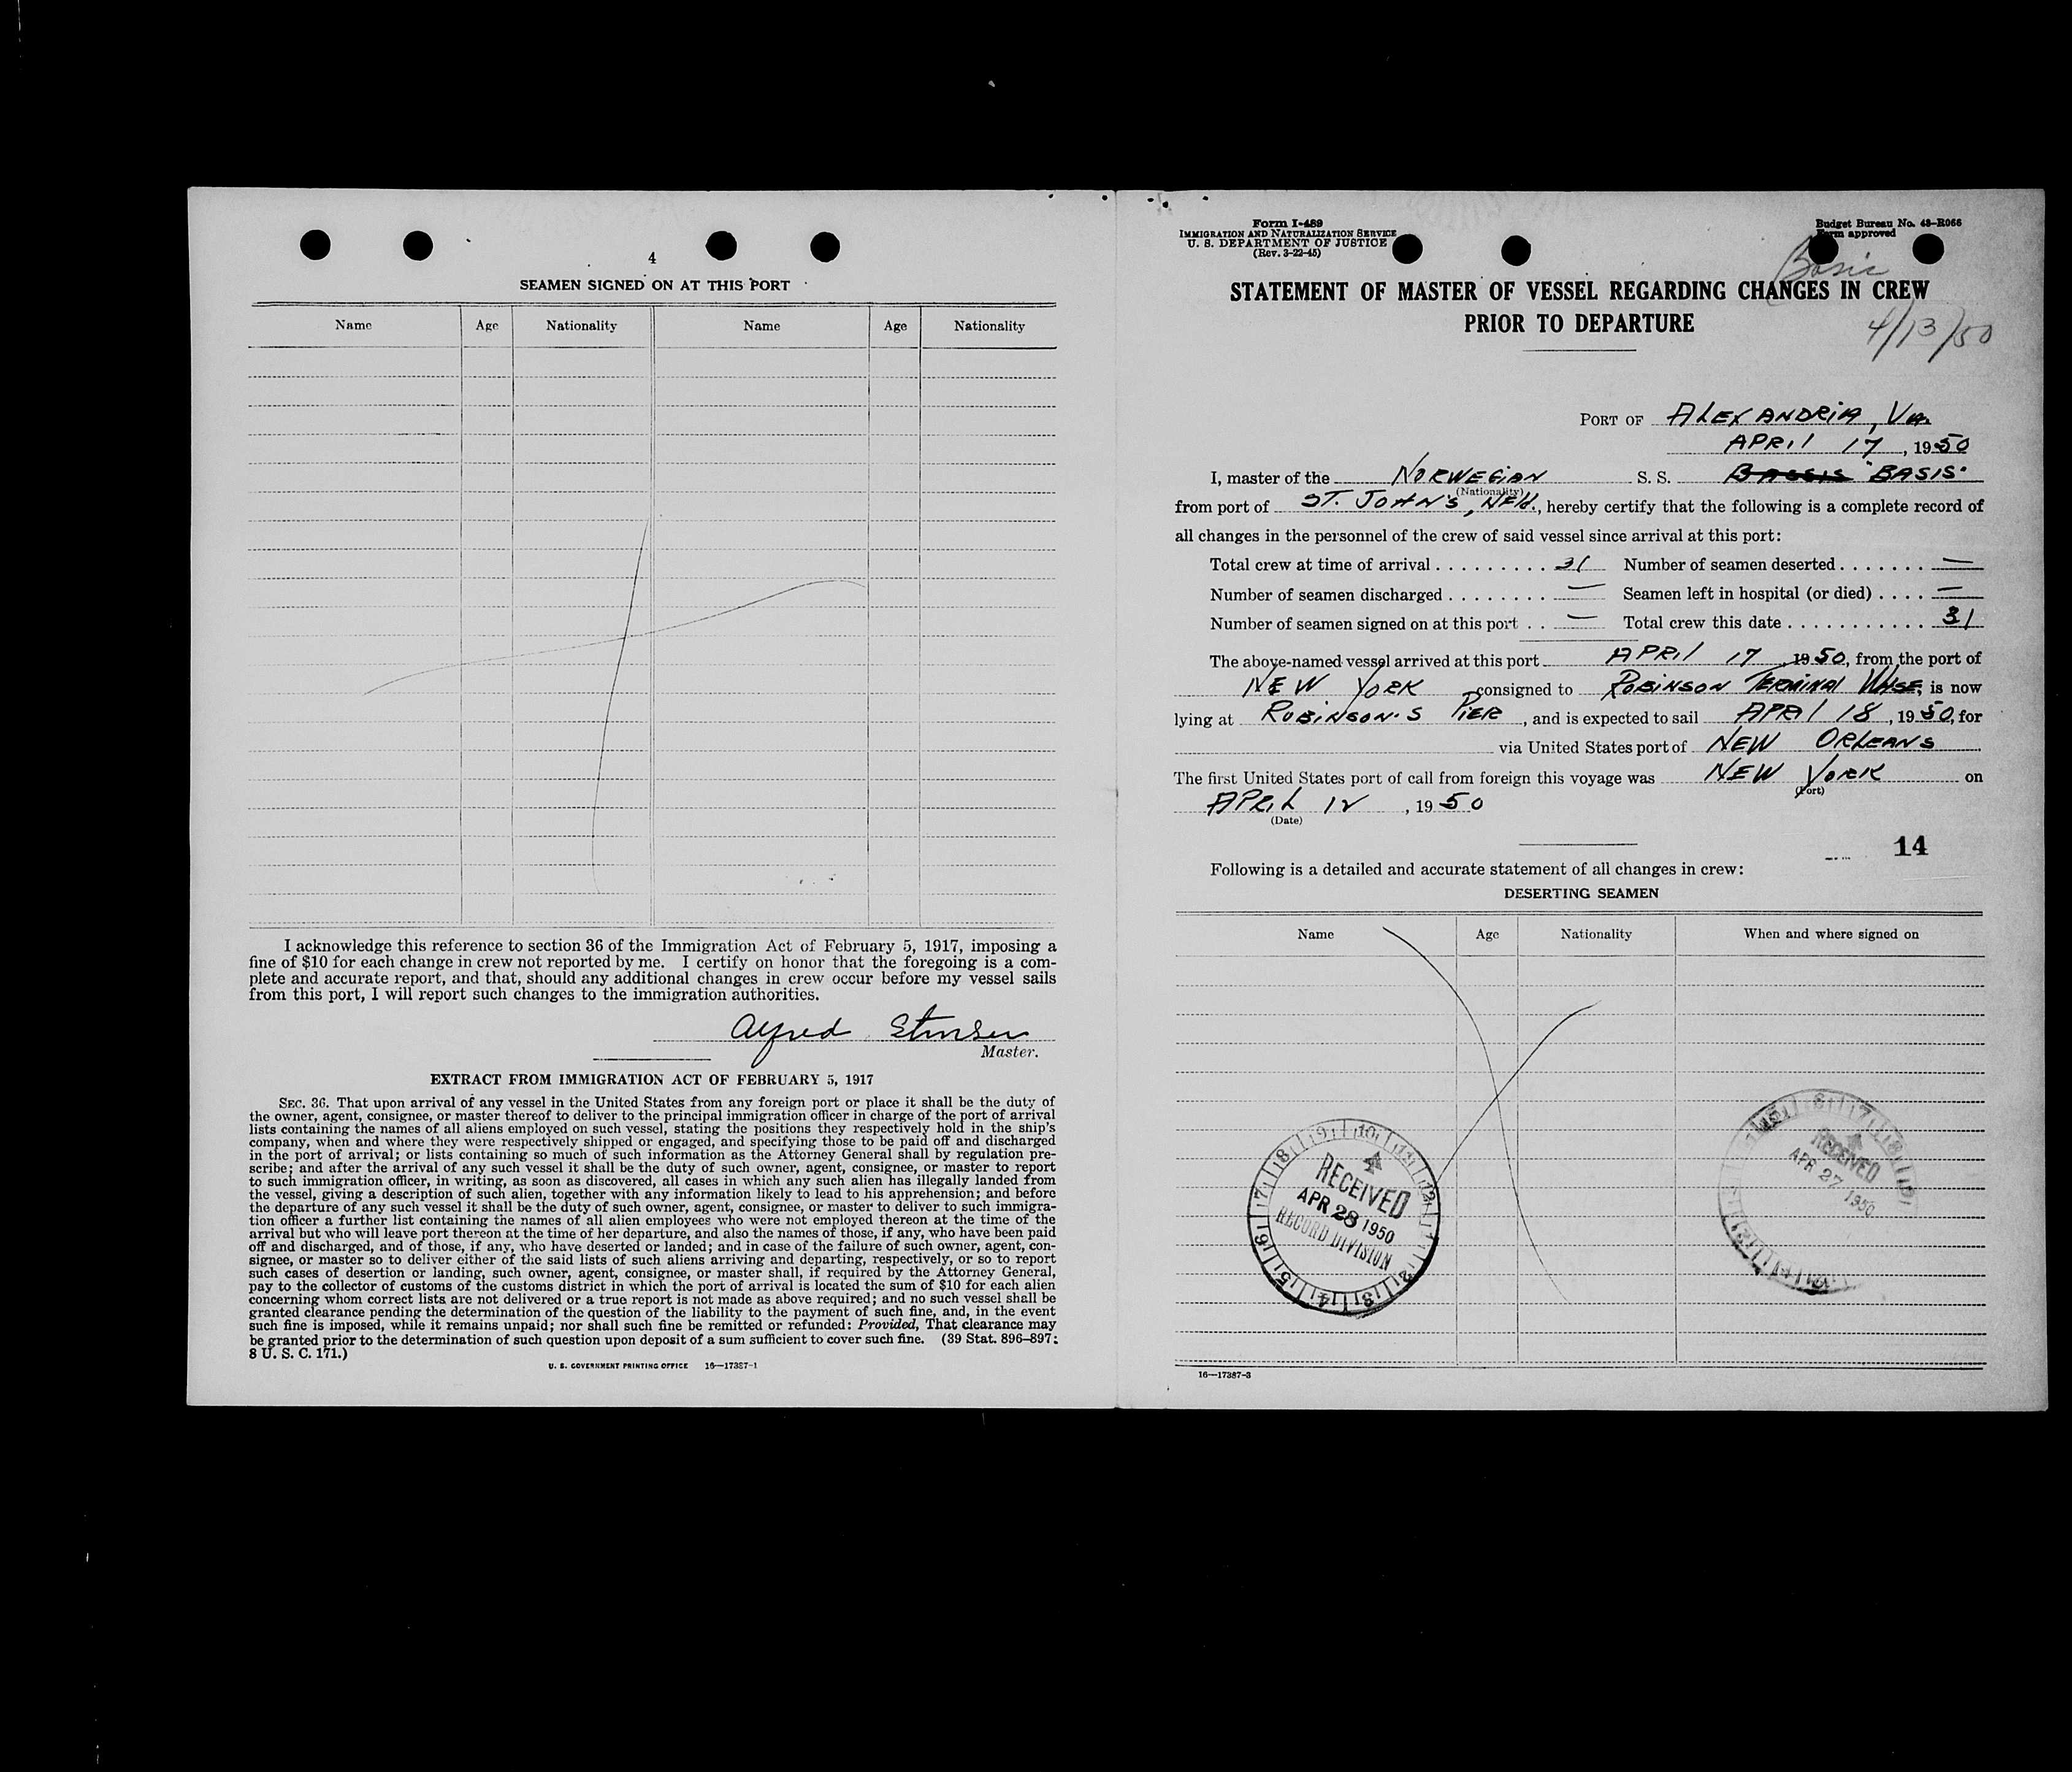 4
SEAMEN SIGNED ON AT THIS PORT
Name Age Nationality Name Age Nationality
I acknowledge this reference to section 36 of the Immigration Act of February 5, 1917, imposing a
fine of $10 for each change in crew not reported by me. I certify on honor that the foregoing is a com-
plete and accurate report, and that, should any additional changes in crew occur before my vessel sails
from this port, I will report such changes to the immigration authorities.
Alfred
Master.
EXTRACT FROM IMMIGRATION ACT OF FEBRUARY 5, 1917
SEC. 36. That upon arrival of any vessel in the United States from any foreign port or place it shall be the duty of
the owner, agent, consignee, or master thereof to deliver to the principal immigration officer in charge of the port of arrival
lists containing the names of all aliens employed on such vessel, stating the positions they respectively hold in the ship's
company, when and where they were respectively shipped or engaged, and specifying those to be paid off and discharged
in the port of arrival; or lists containing so much of such information as the Attorney General shall by regulation pre-
scribe; and after the arrival of any such vessel it shall be the duty of such owner, agent, consignee, or master to report
to such immigration officer, in writing, as soon as discovered, all cases in which any such alien has illegally landed from
the vessel, giving a description of such alien, together with any information likely to lead to his apprehension; and before
the departure of any such vessel it shall be the duty of such owner, agent, consignee, or master to deliver to such immigra-
tion officer a further list containing the names of all alien employees who were not employed thereon at the time of the
arrival but who will leave port thereon at the time of her departure, and also the names of those, if any, who have been paid
off and discharged, and of those, if any, who have deserted or landed; and in case of the failure of such owner, agent, con-
signee, or master so to deliver either of the said lists of such aliens arriving and departing, respectively, or so to report
such cases of desertion or landing, such owner, agent, consignee, or master shall, if required by the Attorney General,
pay to the collector of customs of the customs district in which the port of arrival is located the sum of $10 for each alien
concerning whom correct lists are not delivered or a true report is not made as above required; and no such vessel shall be
granted clearance pending the determination of the question of the liability to the payment of such fine, and, in the event
such fine is imposed, while it remains unpaid; nor shall such fine be remitted or refunded: Provided, That clearance may
be granted prior to the determination of such question upon deposit of a sum sufficient to cover such fine. (39 Stat. 896-897;
8 U. S. C. 171.)
U. S. GOVERNMENT PRINTING OFFICE 16—17387-1
Form I-489
IMMIGRATION AND NATURALIZATION SERVICE
U. S. DEPARTMENT OF JUSTICE
(Rev. 3-22-45)
Budget Bureau No. 43-R066
Form approved
Basis
STATEMENT OF MASTER OF VESSEL REGARDING CHANGES IN CREW
PRIOR TO DEPARTURE
4/13/50
PORT OF ALEXANDRIA, VA.
APRIL 17, 1950
I, master of the NORWEGIAN S. S. "BASIS"
(Nationality)
from port of ST. JOHN'S, NFld., hereby certify that the following is a complete record of
all changes in the personnel of the crew of said vessel since arrival at this port:
Total crew at time of arrival . . . . . . . . . 31 Number of seamen deserted . . . . . . . —
Number of seamen discharged . . . . . . . . — Seamen left in hospital (or died) . . . . —
Number of seamen signed on at this port . . — Total crew this date . . . . . . . . . . . 31
The above-named vessel arrived at this port APRIL 17, 1950, from the port of
NEW YORK consigned to ROBINSON TERMINAL WHSE, is now
lying at ROBINSON'S PIER, and is expected to sail APRIL 18, 1950, for
via United States port of NEW ORLEANS
The first United States port of call from foreign this voyage was NEW YORK on
(Port)
APRIL 12, 1950
(Date)
14
Following is a detailed and accurate statement of all changes in crew:
DESERTING SEAMEN
Name Age Nationality When and where signed on
RECEIVED
APR 28 1950
RECORD DIVISION
RECEIVED
APR 27 1950
16—17387-3